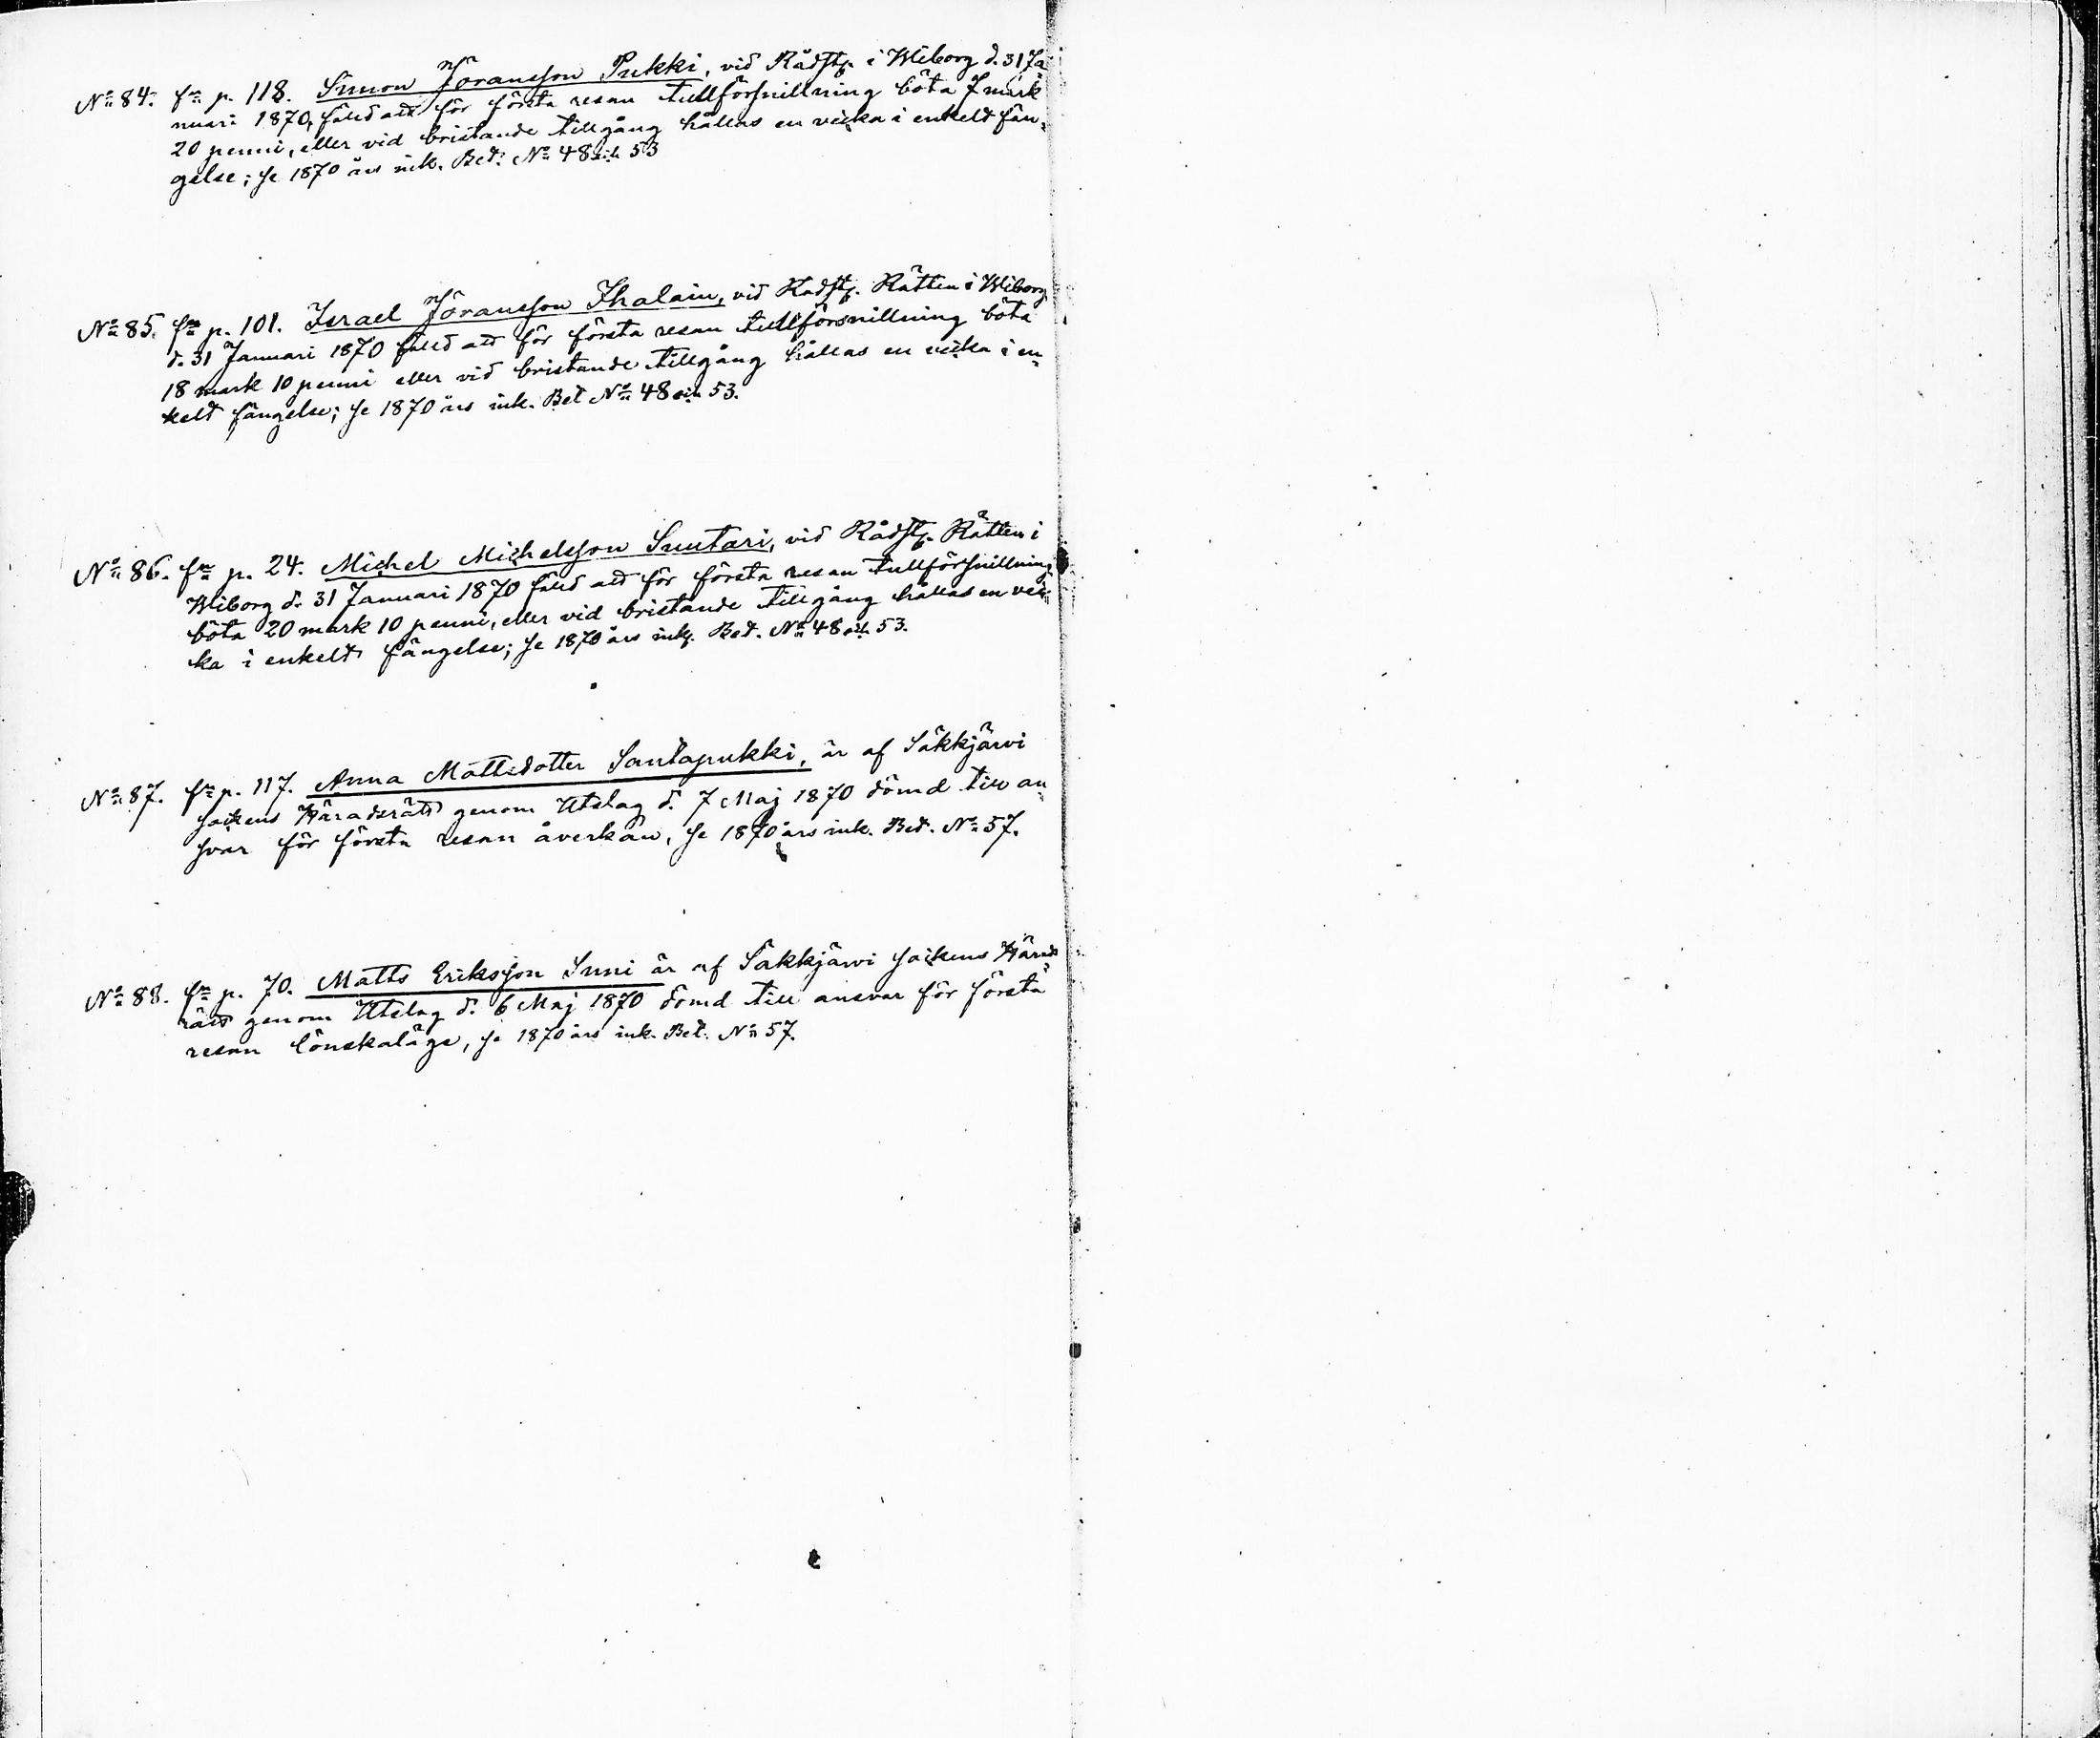 No 84. fr. p. 118. Simon Jöransson Pukki, vid Rådst. i Wiborg d. 31 Ja
nuari 1870, fälld att för första resan tullförsnillning böta 7 mark
20 penni, eller vid bristande tillgång hållas en vecka i enkelt fän-
gelse; se 1870 års ink. Bet. No 48 och 53
No 85. fr. p. 101. Israel Jöransson Ihalain, vid Rådst. Rätten i Wiborg
d. 31 Januari 1870 fälld att för första resan tullförsnillning böta
18 mark 10 penni eller vid bristande tillgång hållas en vecka i en-
kelt fängelse; se 1870 års ink. Bet No 48 och 53.
No 86. fr. p. 24. Michel Michelsson Suutari, vid Rådst. Rätten i
Wiborg d. 31 Januari 1870 fälld att för första resan tullförsnillning
böta 20 mark 10 penni, eller vid bristande tillgång hållas en vec-
ka i enkelt fängelse; se 1870 års ink. Bet. No 48 och 53.
No 87. fr. p. 117. Anna Mattsdotter Santapukki, är af Säkkjärvi
sockens Häradsrätt genom Utslag d. 7 Maj 1870 dömd till an-
svar för första resan åverkan, se 1870 års ink. Bet. No 57.
No 88. fr. p. 70. Matts Eriksson Suni är af Säkkjärvi sockens Härads
rätt genom Utslag d. 6 Maj 1870 dömd till ansvar för första
resan lönskaläge, se 1870 års ink. Bet. No 57.